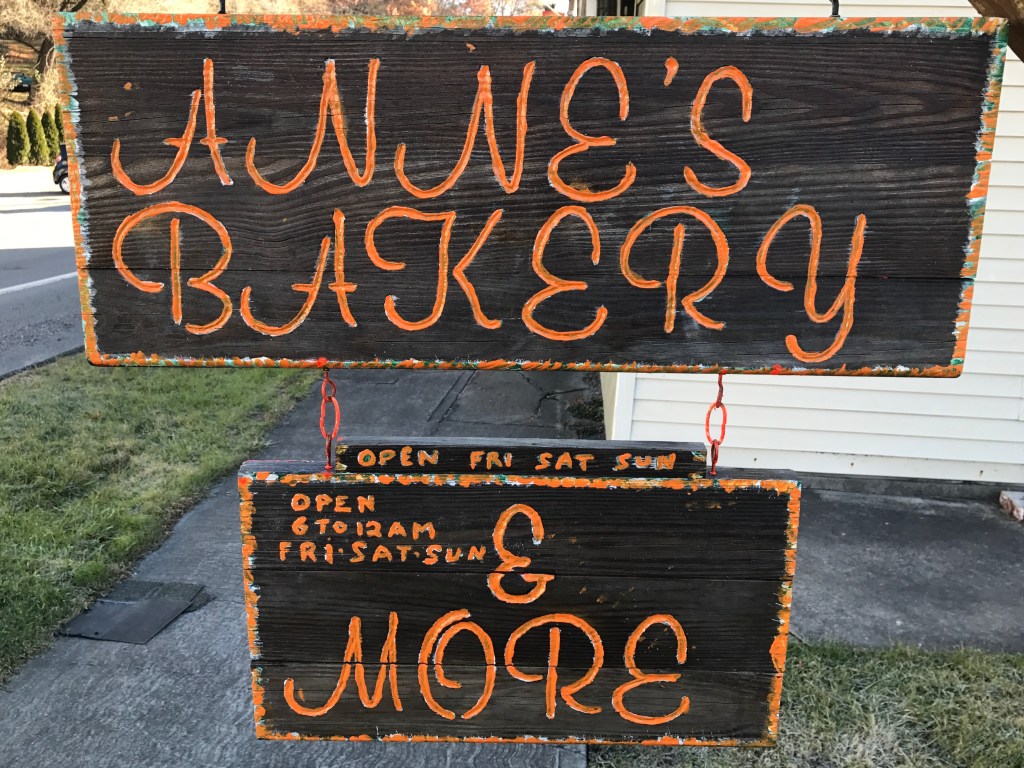 ANNE'S
BAKERY
OPEN FRI SAT SUN
OPEN
6 TO 12 AM
FRI·SAT·SUN
&
MORE